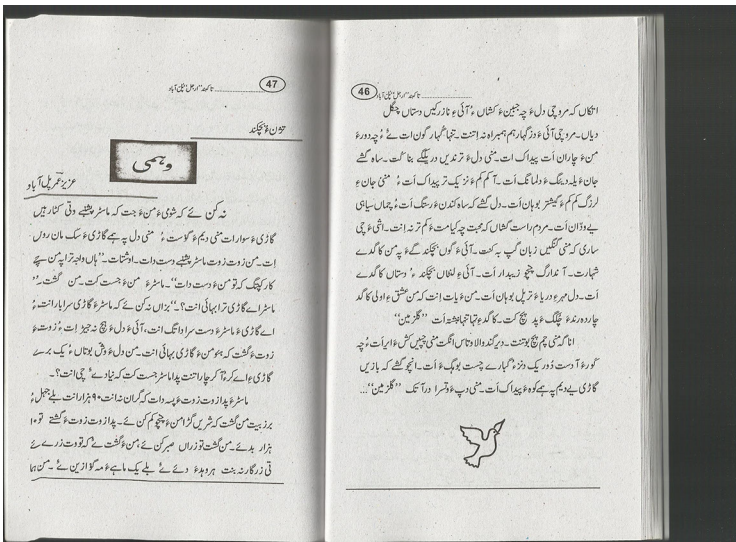 46
اتکاں کہ مروچی دلءَ چہ جبینءَ کشاں ءُ آئیءِ نازرکیں دستاں چنگل
دیاں۔ مروچی آئیءَ دزگہار ہم ہمبراہ نہ اتنت۔ تنہا گہار گون اتئے ءُ چہ دورءَ
منءَ چاران اَت پیداک ات۔ منی دلءَ ترندیں دریگے بنا گت۔ ساہ گشے
جانءَ یلہ دینگءَ دلمانگ اَت۔ آ کم کمءَ نزیک تر پیداک اَت ءُ منی جانءِ
لرزگ کم کمءَ گیشتر بوہان اَت۔ دل گشے کہ ساہ کندنءَ رستگ اَت ءُ چماں سیاہی
بے وڑان اَت۔ مردم راست گشاں کہ محبت چہ کیامتءَ کمتر نہ انت۔ اشیءَ چی
ساری کہ منی گنگیں زبان گپ بہ کت۔ آئیءَ گوں بچکندگےءَ پہ من کاگدے
شہارت۔ آ اندازگ پنچو زیبدار اَت۔ آئیءِ لنٹاں بچکند ءُ دستاں کاگدے
اَت۔ دل مہرءِ دریاءَ تریل بوہان اَت۔ منءَ یات انت کہ من عشقءِ اولی کاگد
چاردہ رندءَ چُگ ءُ پد پچ کت۔ کاگدءِ تہا تہنا نبشتہ اَت ”گلزمین“
انا کہ منی چم پچ بوتنت۔ دیر گندوالا وتاں انگت منی چیں کش ءَ ایر اَت ءُ چہ
کورءَ آ دست دور یک دنزءُ گبارے چست بوہگءَ اَت۔ انچو گشے کہ بازیں
گاڑی بے دیم پہ ہے کوہءَ پیداک اَت۔ منی دپءَ وتسرا در آتک ”گلزمین“...
47
بچکند
وہمی
عزیز عمر پل آباد
نہ کن ئے کہ شومیءَ منءَ جت کہ ماسٹر پشتےءِ وتی کنار ہیں
گاڑیءَ سوار ات منی دیمءَ گوئست ءُ منی دل پہ ہے گاڑیءَ سک مان روں
اِت۔ من زوت زوت ماسٹر پشتےءِ دست دات۔ اوشتات۔ ”ہاں واجہ تراپہ من چے
کار کپتگ کہ تو منءَ دست دات“۔ ماسٹرءَ منءَ جست کت۔ من گشت نہ“
ماسٹر اے گاڑی ترا بہائی انت؟۔“ بزاں نہ کن ئے کہ ماسٹرءَ گاڑی سرا بار انت ءُ
اے گاڑیءِ ماسٹرءَ دست سرا داتگ انت، آئیءَ دلءَ ہچ نہ جیڑ اِت ءُ زوتءَ
زوتءَ گشت کہ ہؤ منءَ گاڑی بہائی انت۔ من دلءَ وش بوتاں ءُ یک برے
گاڑیءِ اے کرءُ آ کر چار اتنت پدا ماسٹر جست کت کہ نیادےءِ چی انت؟۔
ماسٹرءَ پدا زوت زوتءَ پسہ دات کہ گران نہ انت ۹۰ ہزار انت بلے چہل ءُ
برزبیت من گشت کہ شریں گڑا منءَ چنچو کم کن ئے۔ پدا زوت زوتءَ گشتے تو ۱۰
ہزار بدئے۔ من گشت تو زراں صبر کن ئے، منءَ گشت ئے کہ تو وت زرے ئے
تی زرگار نہ بنت ہر وہدءَ دئے ئے بلے یک ماہےءَ مہ گوازین ئے۔ من ہما